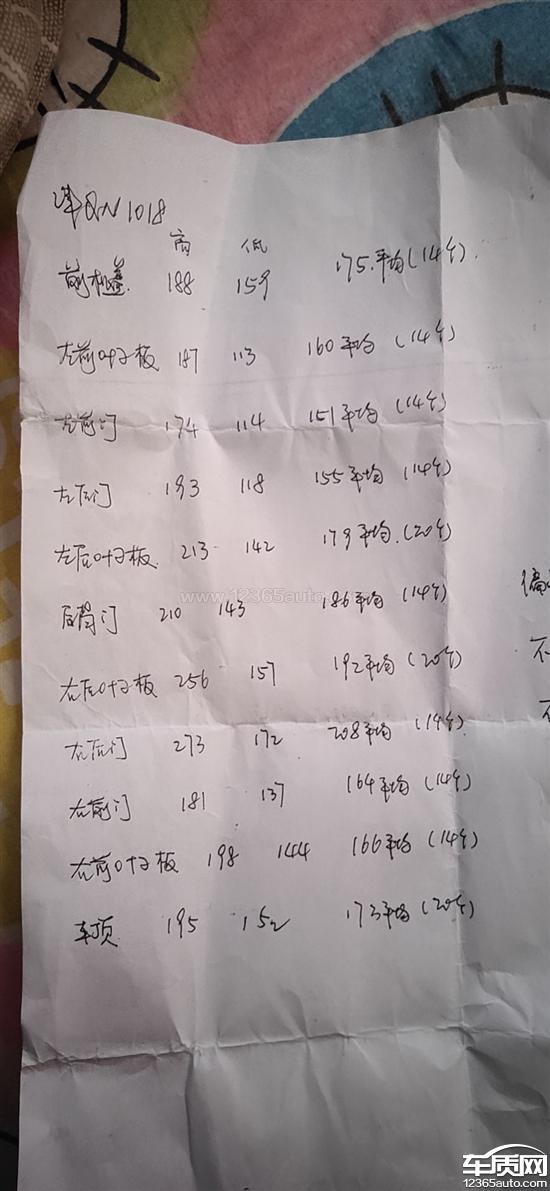 津QN1018
高 低
前机盖 188 159 175.平均(14个)
左前叶子板 187 113 160平均 (14个)
左前门 174 114 151平均 (14个)
左后门 193 118 155平均 (14个)
左后叶子板 213 142 179平均.(20个)
后背门 210 143 186平均 (14个)
右后叶子板 256 157 192平均 (20个)
右后门 273 172 208平均 (14个)
右前门 181 137 164平均 (14个)
右前叶子板 198 144 166平均 (14个)
车顶 195 152 173平均 (20个)
偏
不
不
www.12365auto
车质网
12365auto.com